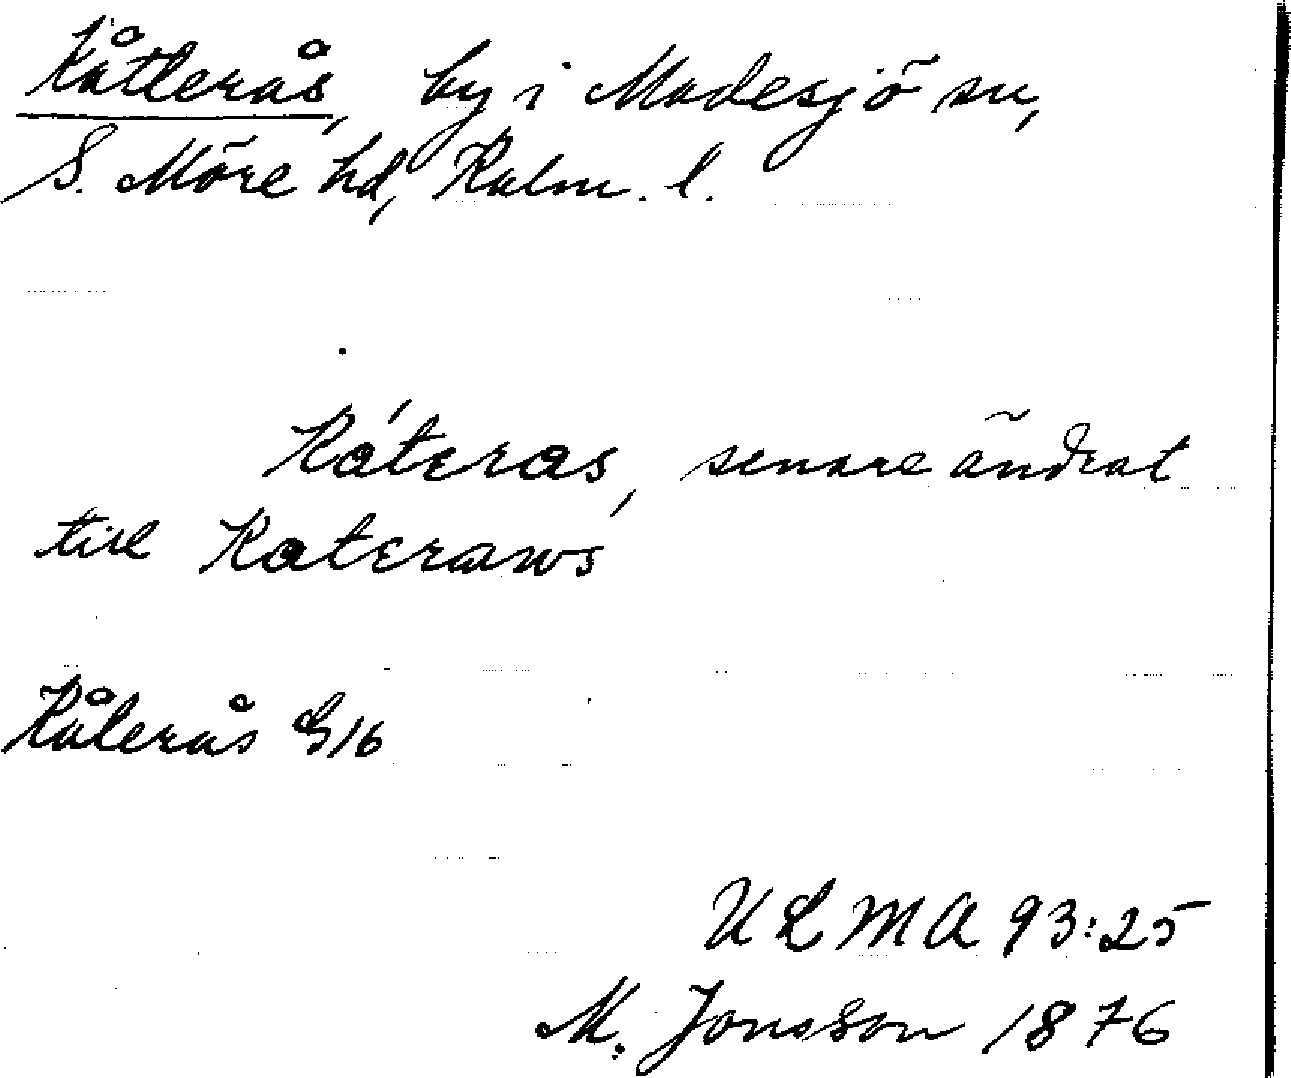 Kåtlerås, by i Madesjö sn,
S. Möre hd, Kalm. l.
Káteras, senare ändrat
till Kateraws
Kålerås G16
ULMA 93:25
M. Jonsson 1876